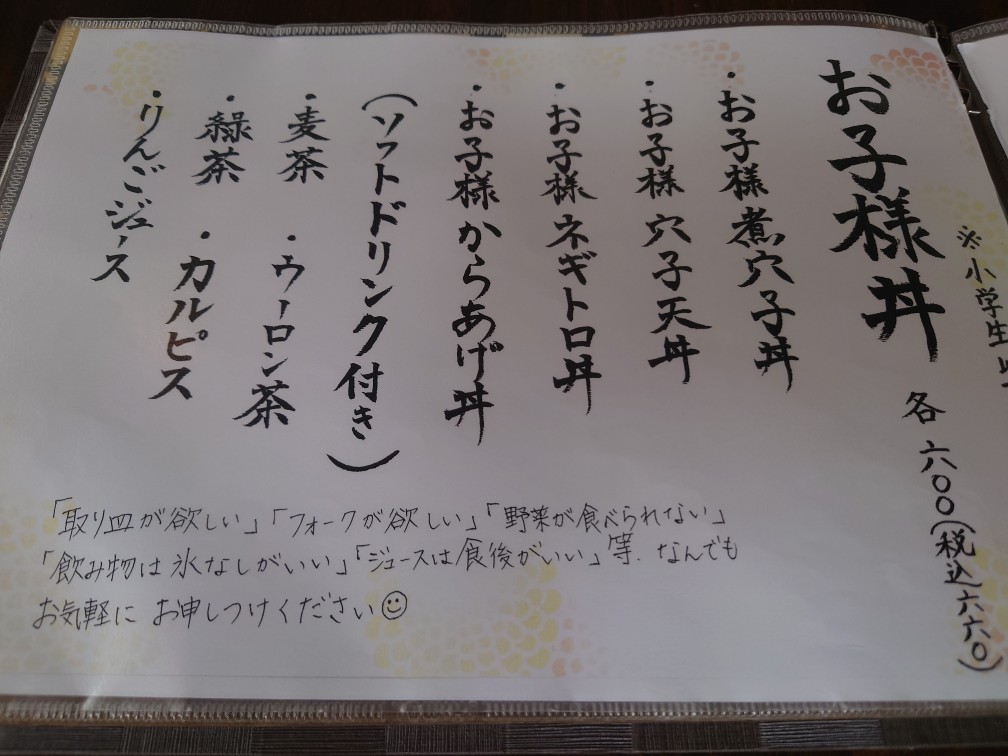 お子様丼 各六〇〇(税込六六〇)
※小学生
・お子様煮穴子丼
・お子様穴子天丼
・お子様ネギトロ丼
・お子様からあげ丼
(ソフトドリンク付き)
・麦茶 ・ウーロン茶
・緑茶 ・カルピス
・りんごジュース
「取り皿が欲しい」「フォークが欲しい」「野菜が食べられない」
「飲み物は氷なしがいい」「ジュースは食後がいい」等、なんでも
お気軽に お申しつけください☺